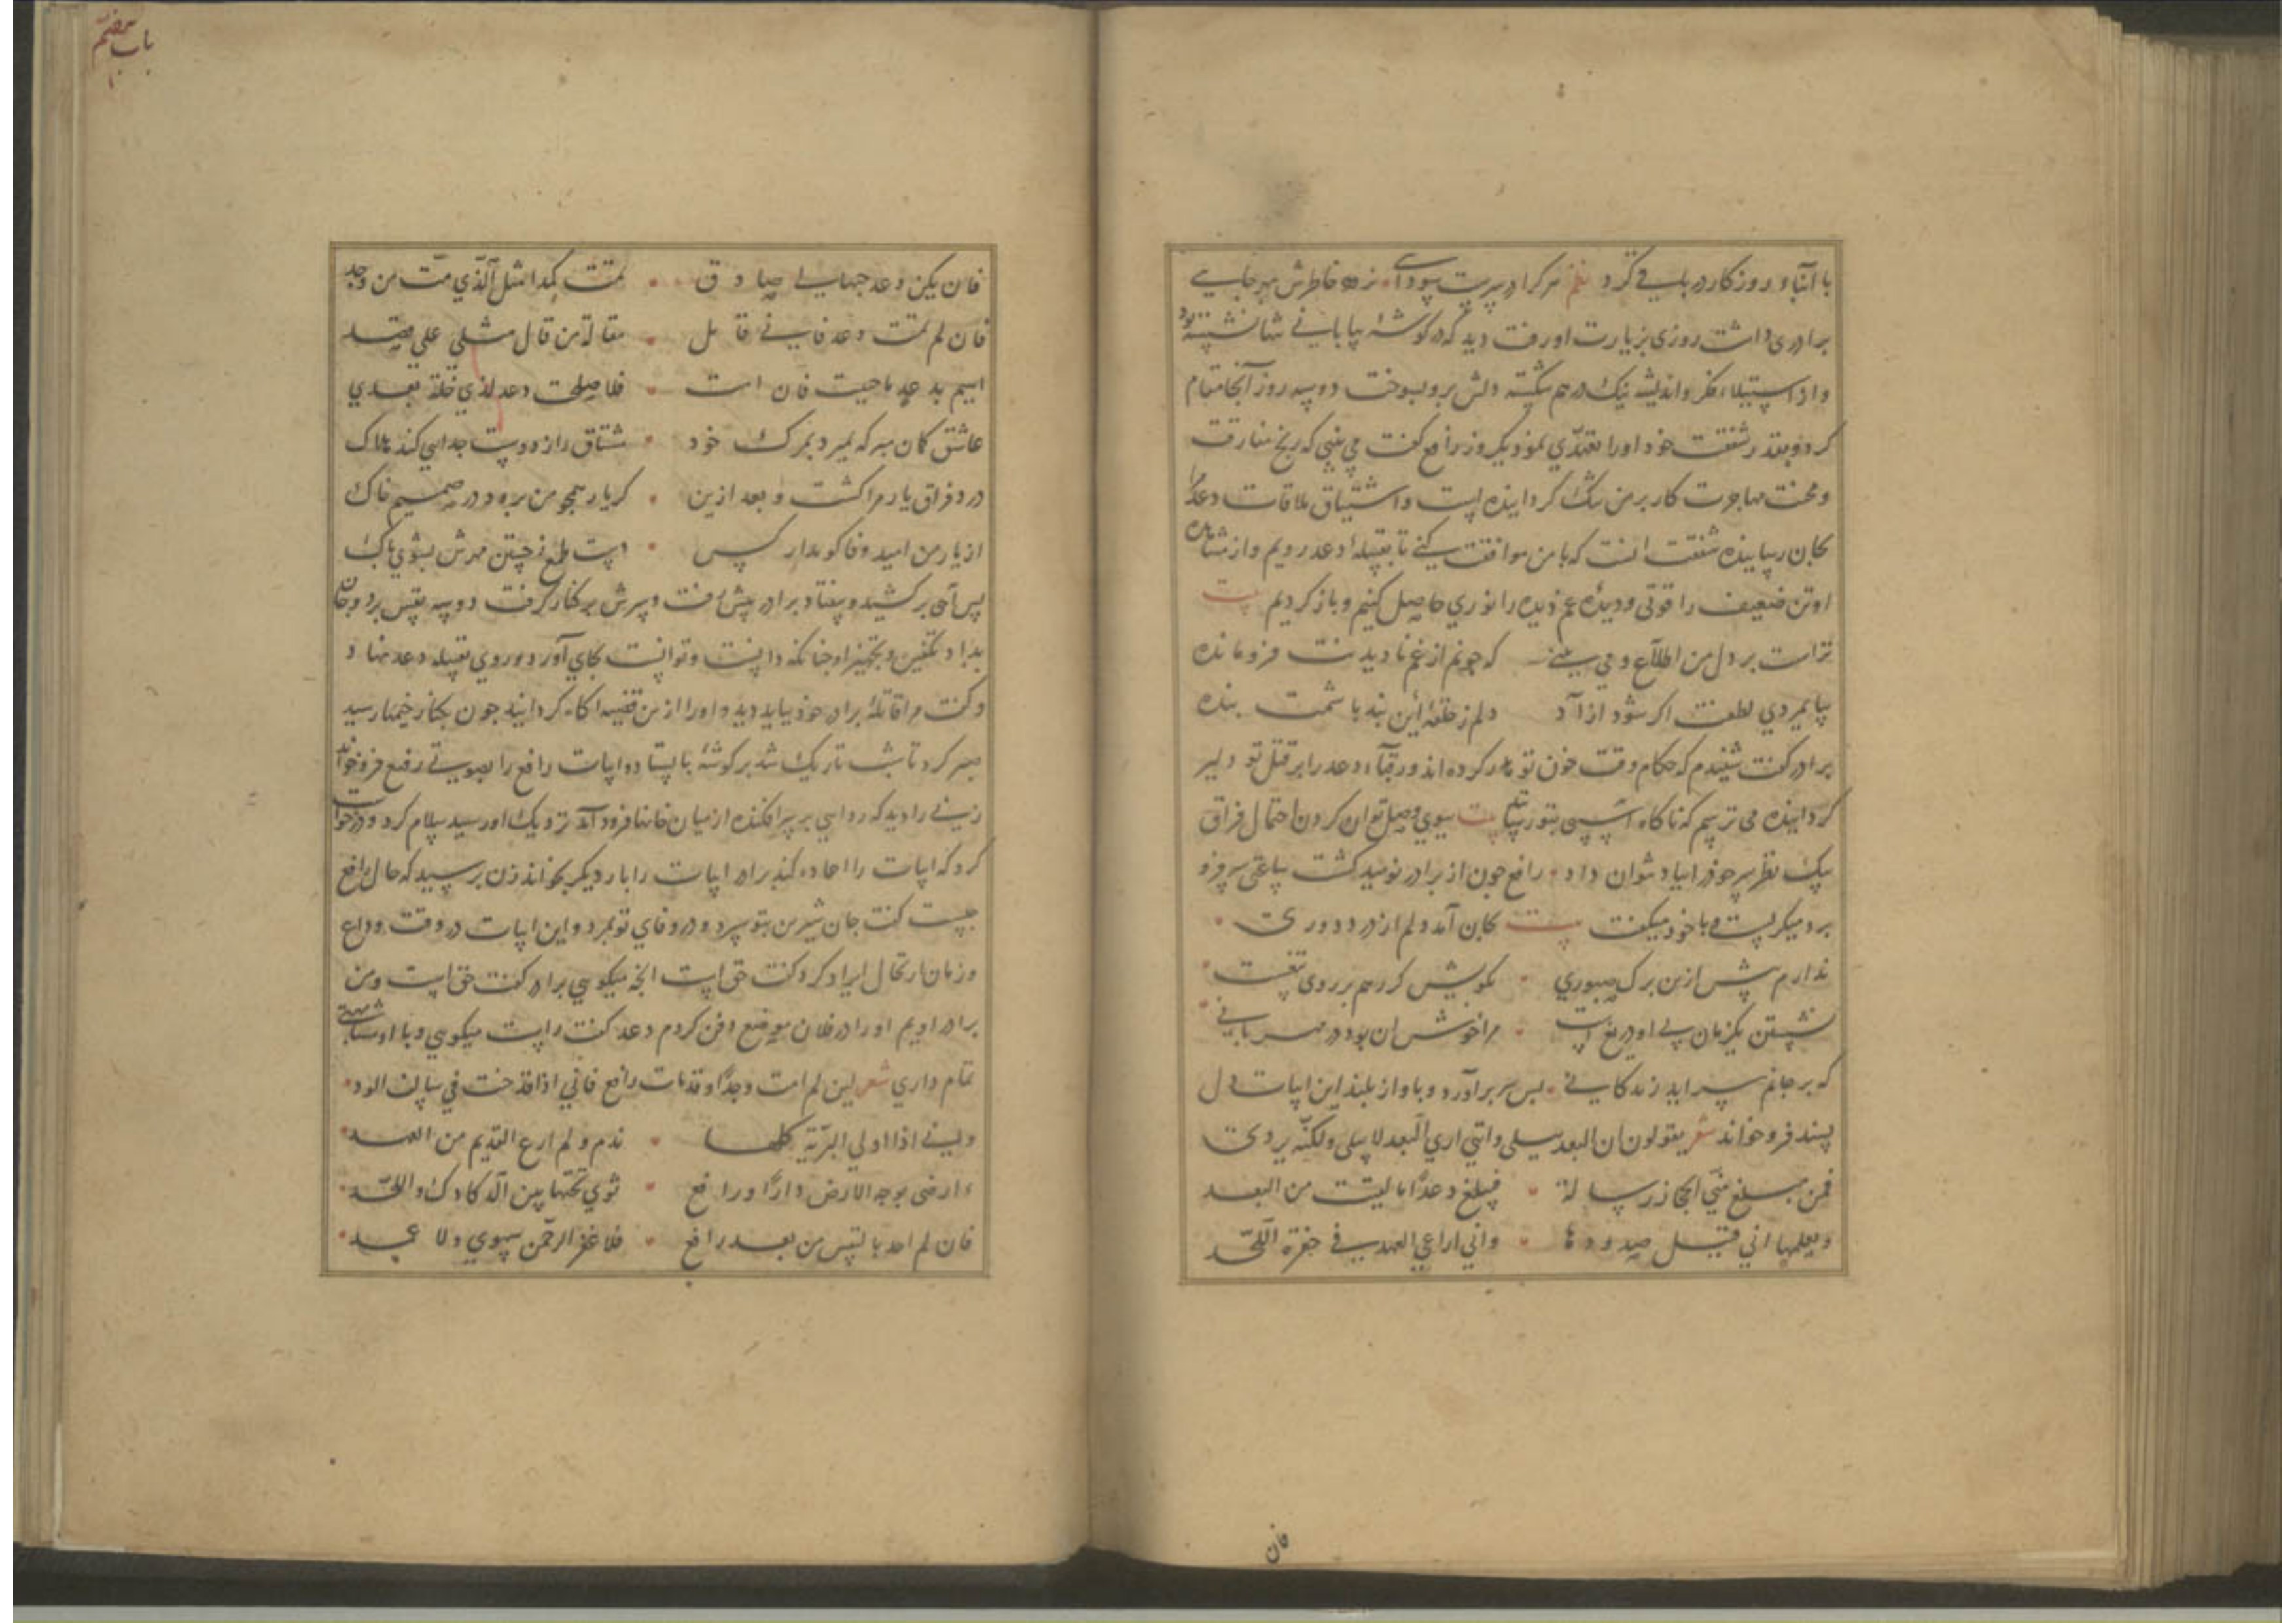 با آبا و روزکار در باب کرد نظم هر کرا در سرست سودای نزود خاطرش بهر جایی
برادری داشت روزی بزیارت او رفت دید که در کوشهٔ بیابانی تنها نشسته بود
و از استیلاء فکر و اندیشه نیک درهم شکسته دلش برو بسوخت دو سه روز آنجا مقام
کرد و بقدر شفقت خود او را تفقدی نمود یکروز رافع کفت می بینی که رنج مفارقت
و محنت مهاجرت کار بر من تنک کردانیده است و اشتیاق ملاقات دعد مرا
بجان رسانیده شفقت آنست که با من موافقت کنی تا بقبیلهٔ دعد رویم و از مشاهده
او تن ضعیف را قوتی و دیدهٔ غم دیده را نوری حاصل کنیم و باز کردیم بیت
تراست بر دل من اطلاع و می بینی که چونم از غم نادیدنت فرومانده
بپایمردی لطفت اکر شود آزاد دلم ز حلقهٔ این بند باشمت بنده
برادر کفت شنیدم که حکام وقت خون تو هدر کرده اند و رقباء دعد را بر قتل تو دلیر
کردانیده می ترسم که ناکاه آسیبی بتو رسد بیت ببوی وصل توان کردن احتمال فراق
بیک نظر سر خود را بباد نتوان داد رافع چون از برادر نومید کشت ساعتی سر فرو
برد میکریست و با خود میکفت بیت بجان آمد دلم از درد دوری
ندارم بیش ازین برک صبوری بکویش کر رسم بر روی تیغست
نشستن یکزمان بی او دریغ است مرا خوش آن بود در مهربانی
که بر جانم سر آید زندکانی بس سر برآورد و باواز بلند این ابیات دل
پسند فرو خواند شعر یقولون ان البعد یسلی وانی اری البعد لا یسلی ولکنه یردی
فمن مبلغ منی الحجاز رسالة فیبلغ دعدا ما لقیت من البعد
ویعلمها انی قتیل صدودها وانی اراعی العهد فی حفرة اللحد
فان
باب هفتم
فان یکن دعد حبها لی صادق تمت کمدا مثل الذی مت من وجد
فان لم تمت دعد فانی قائل مقالة من قال مثلی علی صد
اهیم بدعد ما حییت فان امت فلا صلحت دعد لذی خلة بعدی
عاشق کمان مبر که بمیرد بمرک خود مشتاق را ز دوست جدایی کند هلاک
درد فراق یار مرا کشت و بعد ازین کر یار همچو من برود در صمیم خاک
از یار من امید وفا کو مدار کس دست طمع ز جستن مهرش بشوی پاک
پس آهی برکشید و بیفتاد برادر پیش رفت و سرش بر کنار کرفت دو سه نفس برد و جان
بداد تکفین و تجهیز او چنانکه دانست و توانست بجای آورد و روی بقبیله دعد نهاد
و کفت مرا قاتلهٔ برادر خود بباید دید و او را ازین قضیه آکاه کردانید چون بکنار خیمها رسید
صبر کرد تا شب تاریک شد بر کوشهٔ بایستاد و ابیات رافع را بصوتی رفیع فرو خواند
زنی را دید که ردایی بر سر افکنده از میان خانها فرود آمد نزدیک او رسید سلام کرد و درخواست
کرد که ابیات را اعاده کند برادر ابیات را بار دیکر بخواند زن پرسید که حال رافع
چیست کفت جان شیرین بتو سپرد و در وفای تو بمرد و این ابیات در وقت وداع
و زمان ارتحال ایراد کرد کفت حق است آنچه میکویی برادر کفت حق است و من
برادر اویم او را در فلان موضع دفن کردم دعد کفت راست میکویی و با او مشابهتی
تمام داری شعر لین لم امت وجدا وقد مات رافع فانی اذا قد خنت فی سالف الود
ولینی اذا اولی البریة کلها بذم ولم ارع القدیم من العهد
ءارضی بوجه الارض دارا ورافع ثوی تحتها بین الدکادک واللحد
فان لم اجد بالنفس من بعد رافع فلا غفر الرحمن سهوی ولا عمد